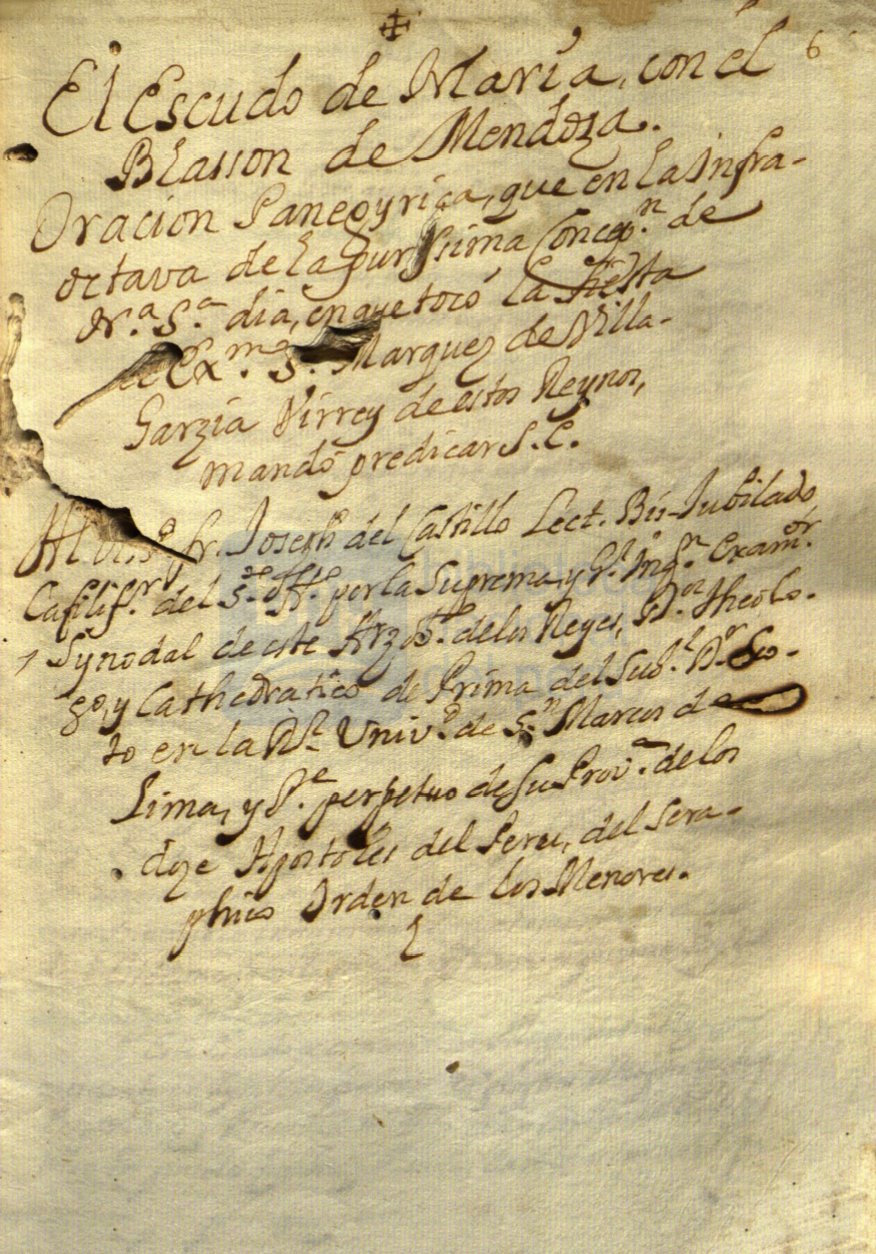 ✠
6
El Escudo de Maria, con el
Blasson de Mendoza.
Oracion Panegyrica, que en la Infra-
octava de la purissima Concepn. de
Nra. Sa. dia, en que tocó la fiesta
el Exmo. Sr. Marquez de Villa-
Garzia Virrey de estos Reynos,
mandó predicar S. E.
Fr. Joseph del Castillo Lect. Bis-Jubilado,
Califr. del So. Offo. por la Suprema, y Gl. Inqn. Examor.
Synodal de este Arzobo. de los Reyes, Dor. Theolo-
go, y Cathedratico de Prima del Subl. Dr. Sco-
to en la Rl. Univd. de Sn. Marcos de
Lima, y Pe. perpetuo de su Prova. de los
doze Apostoles del Peru, del Sera-
phico Orden de los Menores.